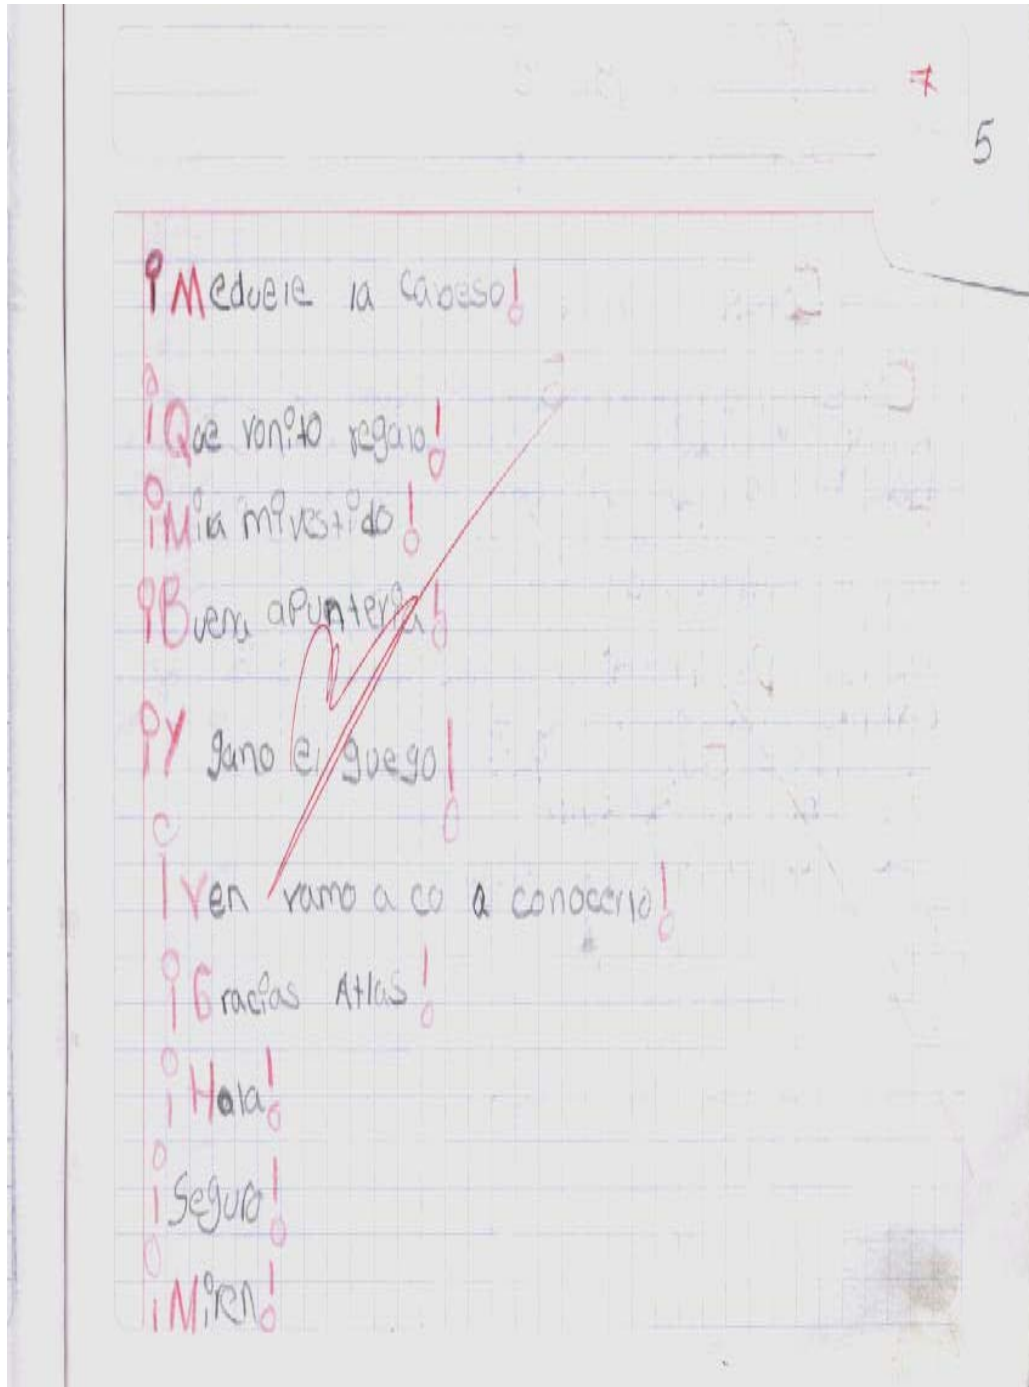 7
5
¡Meduele la cabeso!
¡Que vonito regalo!
¡Mira mi vestido!
¡Buena apunteria!
¡Y gano el guego!
¡Ven vamo a co a conocerlo!
¡Gracias Atlas!
¡Hola!
¡Seguro!
¡Miren!